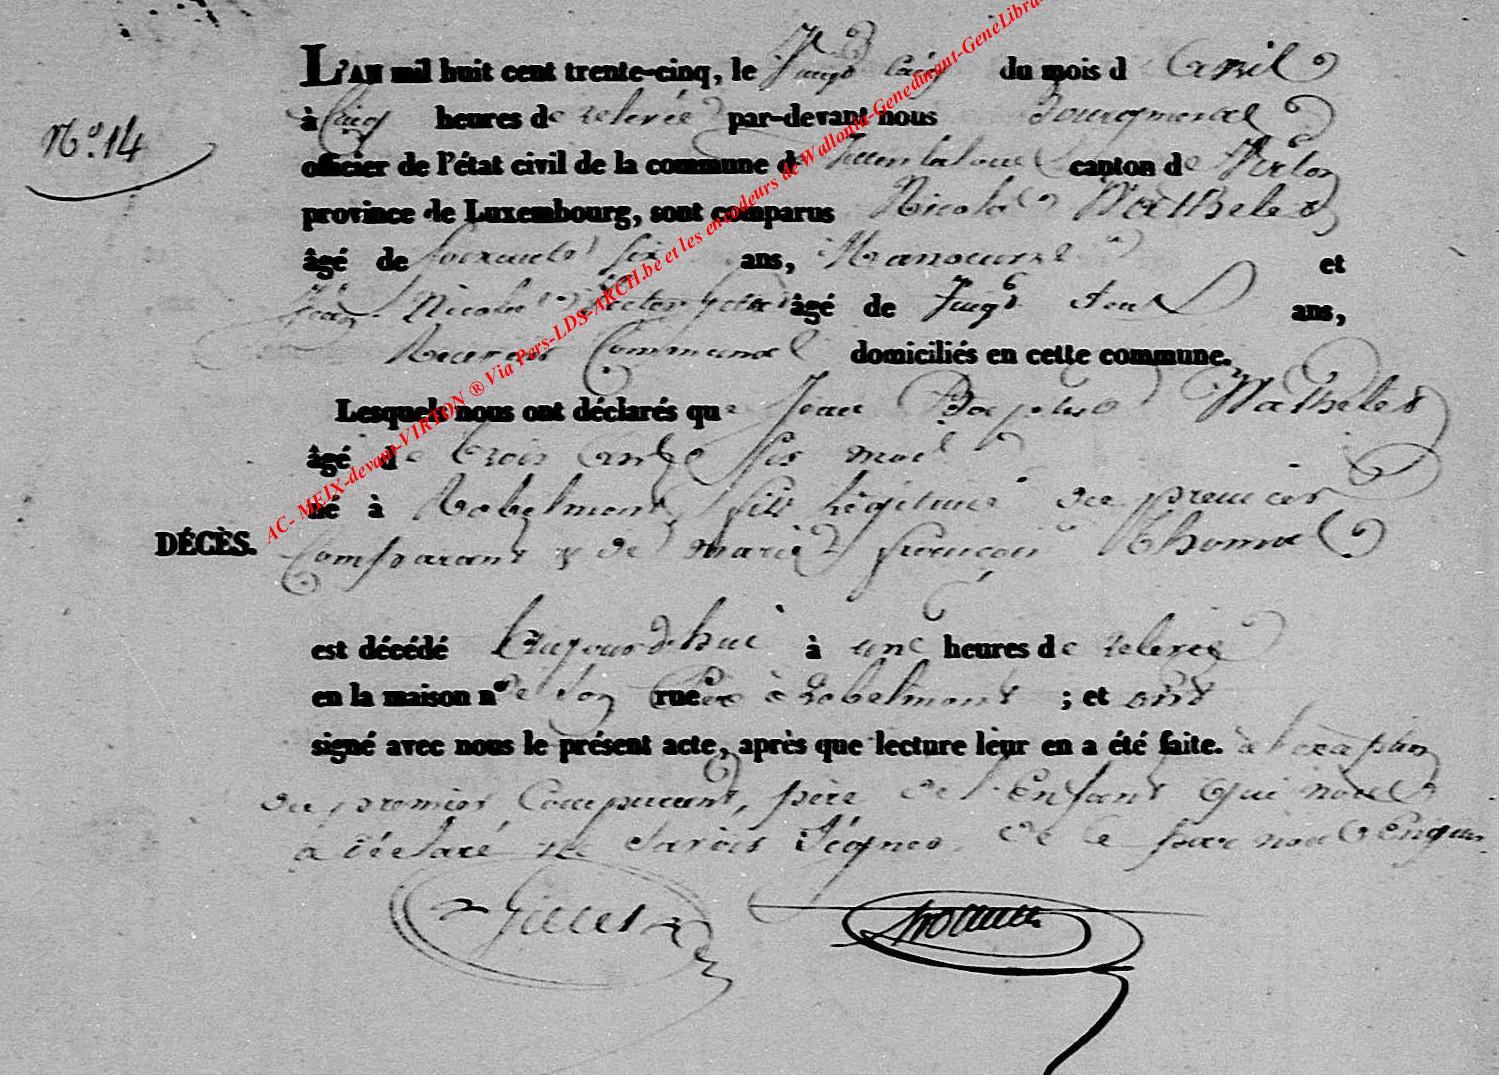 N° 14
L'AN mil huit cent trente-cinq, le vingt cinq du mois d'avril
à cinq heures de relevée par-devant nous Bourgmestre
officier de l'état civil de la commune de canton de Virton
province de Luxembourg, sont comparus Nicolas Watthelet
âgé de soixante six ans, Manoeuvre et
Jean Nicolas Victor âgé de vingt ans,
Receveur Communal domiciliés en cette commune.
Lesquels nous ont déclarés que Jean Baptiste Wathelet
âgé de trois ans six mois
né à Robelmont, fils légitime du premier
Comparant & de marie françoise Thomas
DÉCÈS.
est décédé aujourd'hui à une heures de relevée
en la maison n° de son rue père à Robelmont ; et ont
signé avec nous le présent acte, après que lecture leur en a été faite. à l'exception
du premier Comparant, père de l'Enfant qui nous
a déclaré ne savoir signer. de ce par nous Enquis
Gillet
AC- MEIX-devant-VIRTON ® Via Pers-LDS-ARCH.be et les encodeurs de Wallonia-Genedinant-GeneLibra